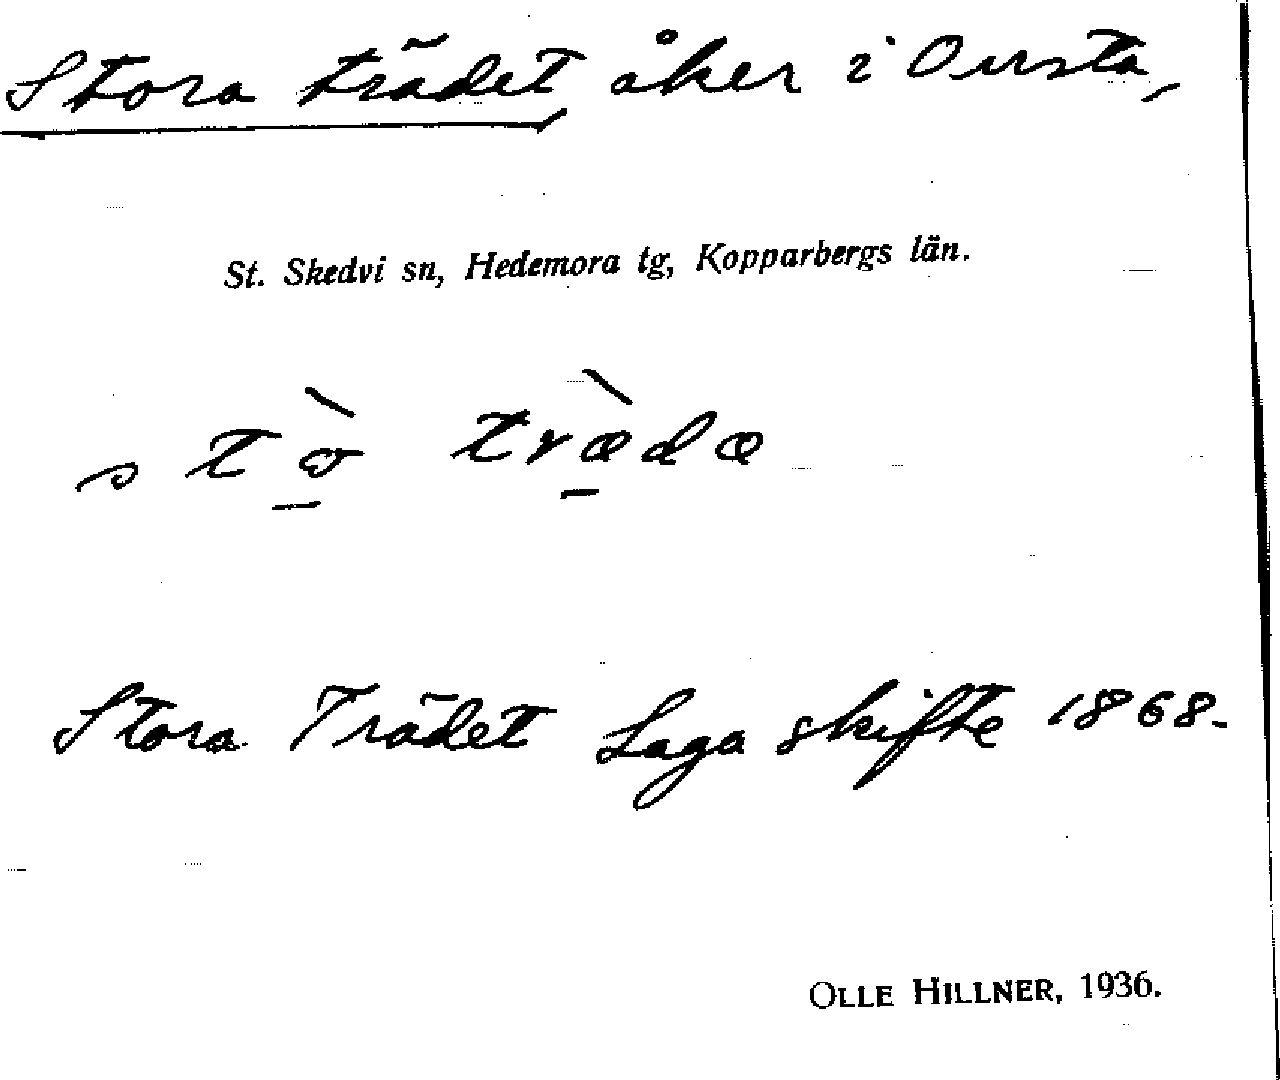 Stora trädet, åker i Ovsta,
St. Skedvi sn, Hedemora tg, Kopparbergs län.
Stora Trädet Laga skifte 1868.
OLLE HILLNER, 1936.